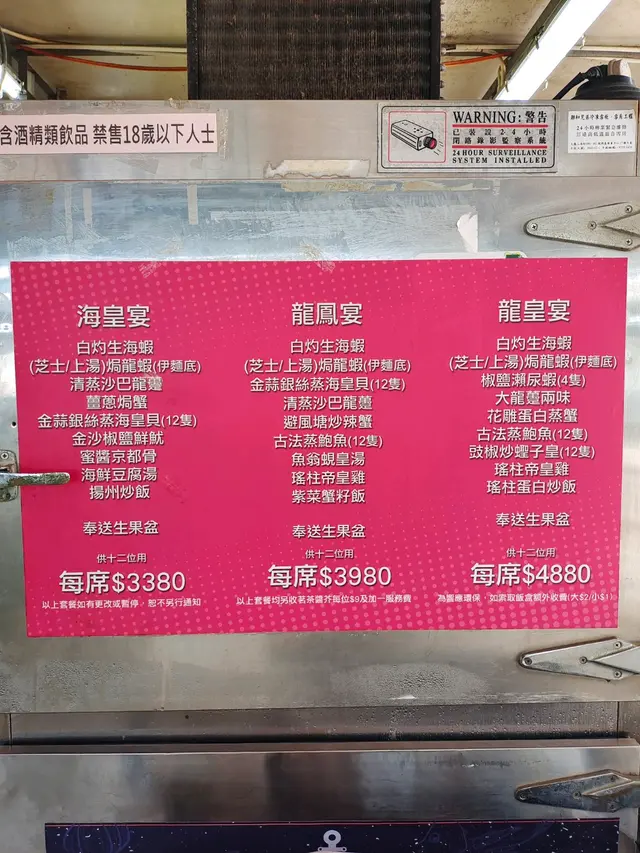 含酒精類飲品 禁售18歲以下人士
WARNING: 警告
已裝設24小時
閉路錄影監察系統
24 HOUR SURVEILLANCE
SYSTEM INSTALLED
海皇宴
白灼生海蝦
(芝士/上湯)焗龍蝦(伊麵底)
清蒸沙巴龍躉
薑蔥焗蟹
金蒜銀絲蒸海皇貝(12隻)
金沙椒鹽鮮魷
蜜醬京都骨
海鮮豆腐湯
揚州炒飯
奉送生果盆
供十二位用
每席$3380
以上套餐如有更改或暫停，恕不另行通知
龍鳳宴
白灼生海蝦
(芝士/上湯)焗龍蝦(伊麵底)
金蒜銀絲蒸海皇貝(12隻)
清蒸沙巴龍躉
避風塘炒辣蟹
古法蒸鮑魚(12隻)
魚翁蜆皇湯
瑤柱帝皇雞
紫菜蟹籽飯
奉送生果盆
供十二位用
每席$3980
以上套餐均另收茗茶醬芥每位$9及加一服務費
龍皇宴
白灼生海蝦
(芝士/上湯)焗龍蝦(伊麵底)
椒鹽瀨尿蝦(4隻)
大龍躉兩味
花雕蛋白蒸蟹
古法蒸鮑魚(12隻)
豉椒炒蟶子皇(12隻)
瑤柱帝皇雞
瑤柱蛋白炒飯
奉送生果盆
供十二位用
每席$4880
為響應環保，如索取飯盒額外收費(大$2/小$1)